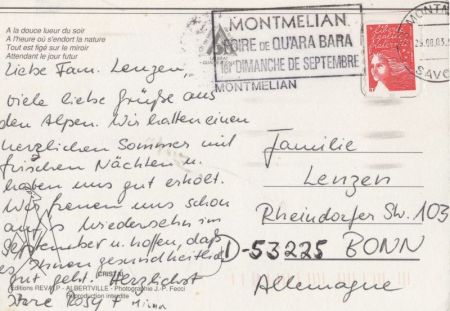 A la douce lueur du soir
A l'heure où s'endort la nature
Tout est figé sur le miroir
Attendant le jour futur
MONTMELIAN
FOIRE de QU'ARA BARA
1er DIMANCHE DE SEPTEMBRE
MONTMELIAN
SAVO
Liebe Fam. Lenzen,
viele liebe Grüße aus
den Alpen. Wir hatten einen
herzlichen Sommer mit
frischen Nächten u.
haben uns gut erholt.
Wir freuen uns schon
aufs Wiedersehn im
September u. hoffen, daß
es Ihnen gesundheitlich
gut geht. Herzlichst
Ihre Rosy +
Familie
Lenzen
Rheindorfer Str. 103
D-53225 BONN
Allemagne
CRISTAL
Editions REVALP - ALBERTVILLE - Photographie J.-P. Fecci
Reproduction interdite